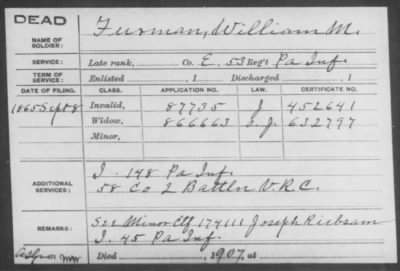 DEAD
NAME OF SOLDIER: Furman, William M.
SERVICE: Late rank, Co. E, 53 Reg't Pa Inf.
TERM OF SERVICE: Enlisted , 1 Discharged , 1
DATE OF FILING. CLASS. APPLICATION NO. LAW. CERTIFICATE NO.
1865 Sept 8 Invalid, 87735 J 452641
Widow, 866663 G.J. 632797
Minor,
ADDITIONAL SERVICES: I. 148 Pa Inf.
58 Co 2 Battln V.R.C.
REMARKS: See Minor Ctf 174111 Joseph
I. 45 Pa Inf.
Died , 1907, at